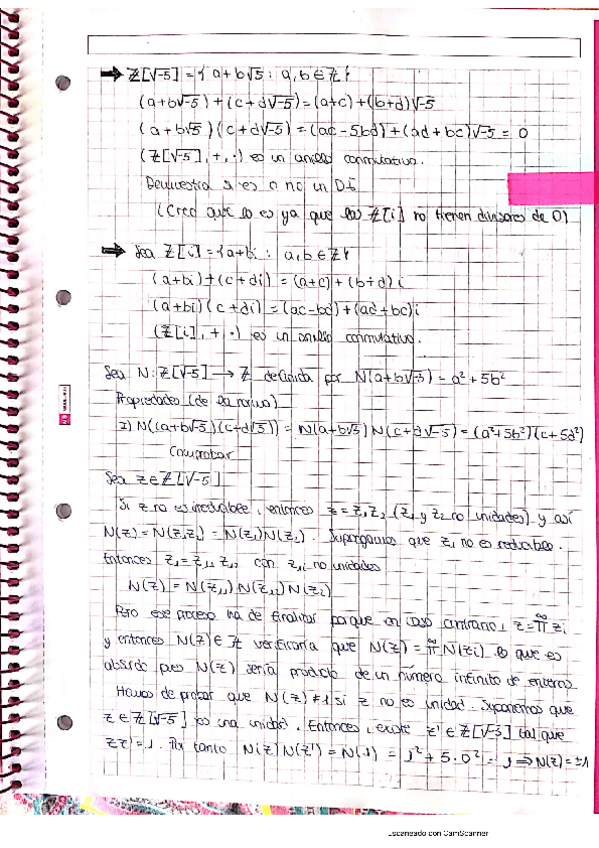 → Z[√-5] = { a + b√5 : a, b ∈ Z }
(a+b√-5) + (c+d√-5) = (a+c) + (b+d)√-5
(a+b√5)(c+d√-5) = (ac-5bd) + (ad+bc)√-5 = 0
(Z[√-5], +, ·) es un anillo conmutativo.
Demuestra si es o no un DI
(Creo que lo es ya que los Z[i] no tienen divisores de 0)
→ Sea Z[i] = {a+bi : a, b ∈ Z}
(a+bi) + (c+di) = (a+c) + (b+d)i
(a+bi)(c+di) = (ac-bd) + (ad+bc)i
(Z[i], +, ·) es un anillo conmutativo.
Sea N: Z[√-5] → Z definida por N(a+b√-5) = a² + 5b²
Propiedades (de la norma)
1) N((a+b√-5)(c+d√5)) = N(a+b√5) N(c+d√-5) = (a²+5b²)(c+5d²)
Comprobar
Sea z ∈ Z[√-5]
Si z no es irreducible, entonces z = z₁z₂ (z₁ y z₂ no unidades) y así
N(z) = N(z₁z₂) = N(z₁)N(z₂). Supongamos que z₁ no es reducible.
Entonces z₁ = z₁₁ z₁₂ con z₁ᵢ no unidades
N(z) = N(z₁₁) N(z₁₂) N(z₂)
Pero ese proceso ha de finalizar porque en caso contrario, z = ∏^∞ zᵢ
y entonces N(z) ∈ Z verificaría que N(z) = ∏^∞ N(zᵢ) lo que es
absurdo pues N(z) sería producto de un número infinito de enteros
Hemos de probar que N(z) ≠ 1 si z no es unidad. Suponemos que
z ∈ Z[√-5] es una unidad. Entonces, existe z' ∈ Z[√-5] tal que
zz' = 1. Por tanto N(z)N(z') = N(1) = 1² + 5·0² = 1 ⇒ N(z) = ±1
Escaneado con CamScanner